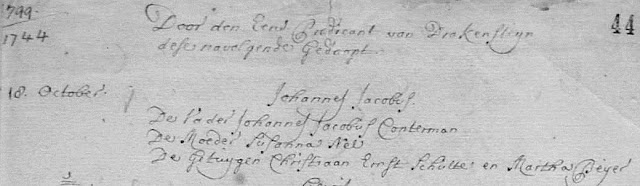 799.
1744
44
Door den Eerw Predicant van Drakensteyn
dese navolgende Gedoopt.
18. October.
Johannes Jacobus.
De Vader Johannes Jacobus Conterman
De Moeder Susanna Nel
De Getuygen Christiaan Ernst Schutte en Martha Beyer